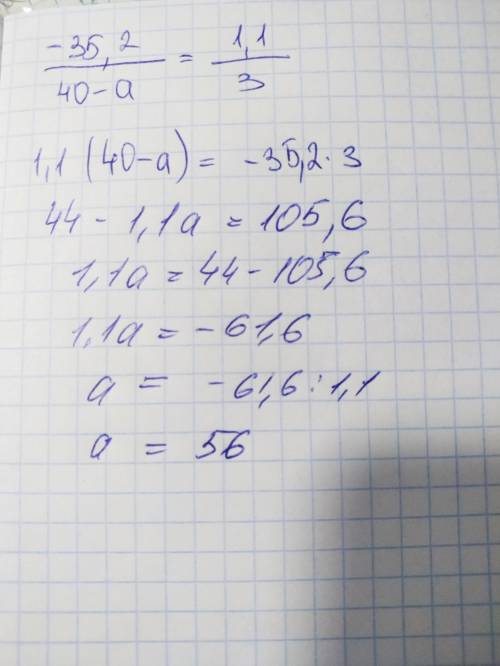 -35,2 / 40-a = 1,1 / 3
1,1 (40-a) = -35,2·3
44 - 1,1a = 105,6
1,1a = 44 - 105,6
1,1a = -61,6
a = -61,6 : 1,1
a = 56